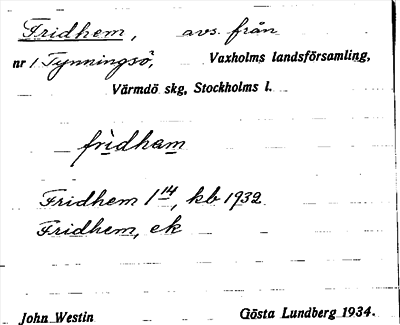 Fridhem, avs. från
nr 1 Tynningsö, Vaxholms landsförsamling,
Värmdö skg, Stockholms l.
frìdham
Fridhem 1 14, kb 1932
Fridhem, ek
John Westin Gösta Lundberg 1934.